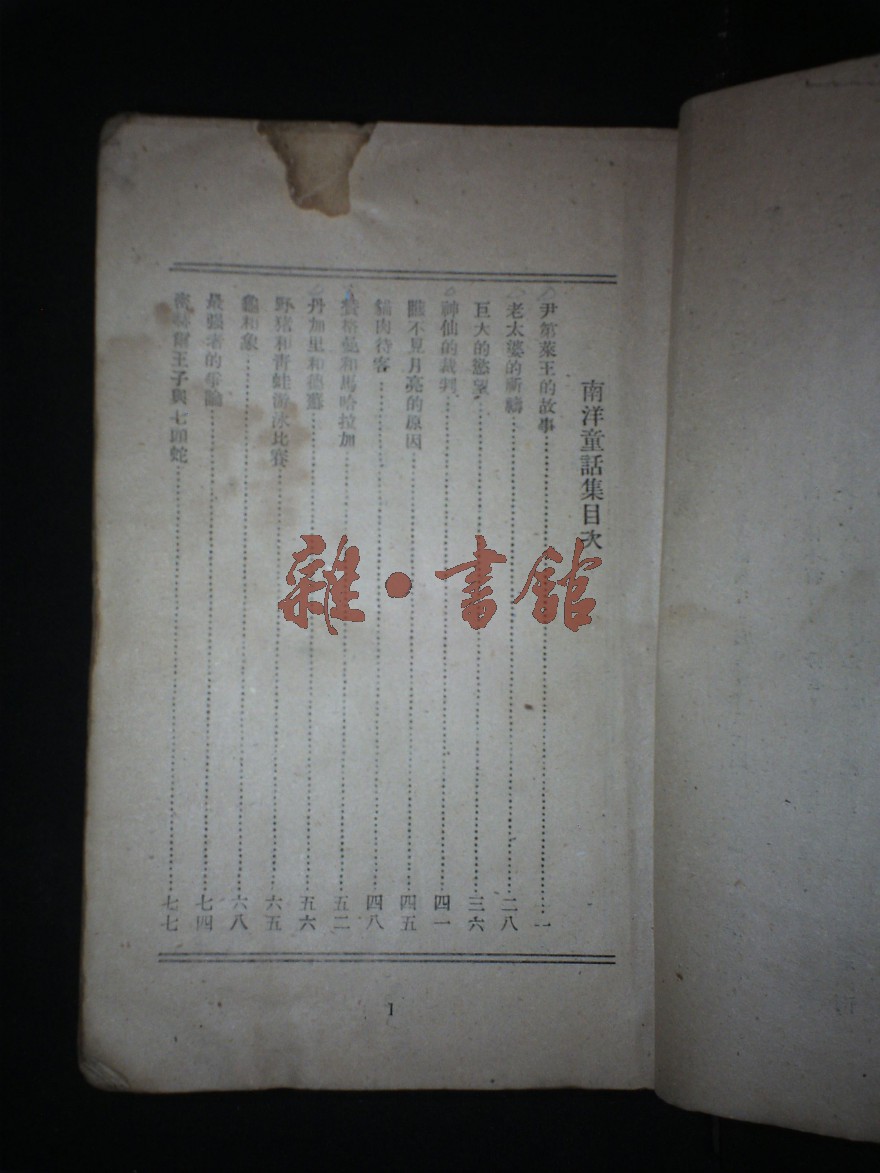 南洋童話集目次
尹第萊王的故事……一
老太婆的祈禱……二八
巨大的慾望……三六
神仙的裁判……四一
瞧不見月亮的原因……四五
肉待客……四八
和馬哈拉加……五二
丹加里和德蘇……五六
野猪和青蛙游泳比賽……六五
龜和象……六八
最強者的爭論……七四
爾王子與七頭蛇……七七
1
雜·書館